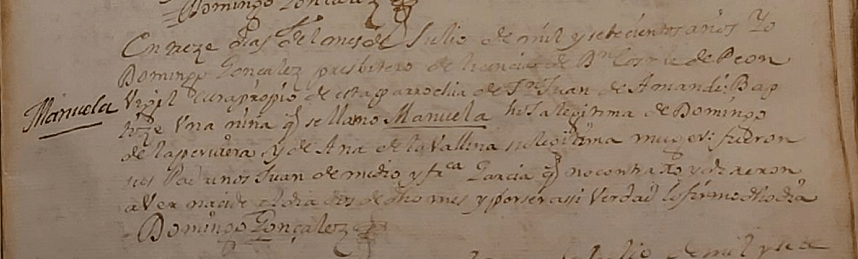 Domingo Gonçalez
En treze dias del mes de Jullio de mil y setecientos años Yo
Domingo Gonçalez presbitero de licencia de Dn Cosme de Peon
Vigil cura propio de esta parrochia de Sn Juan de Amandi: Bap
Manuela
tize Vna niña q se llamo Manuela hija legitima de Domingo
de la peruiera y de Ana de la Vallina su legitima muger: fueron
sus Padrinos Juan de medio y frca Garcia q no contrajo y dixeron
aver nacido el dia dos de dho mes y por ser assi Verdad lo firmo dho dia
Domingo Gonçalez
Julio de mil y sete